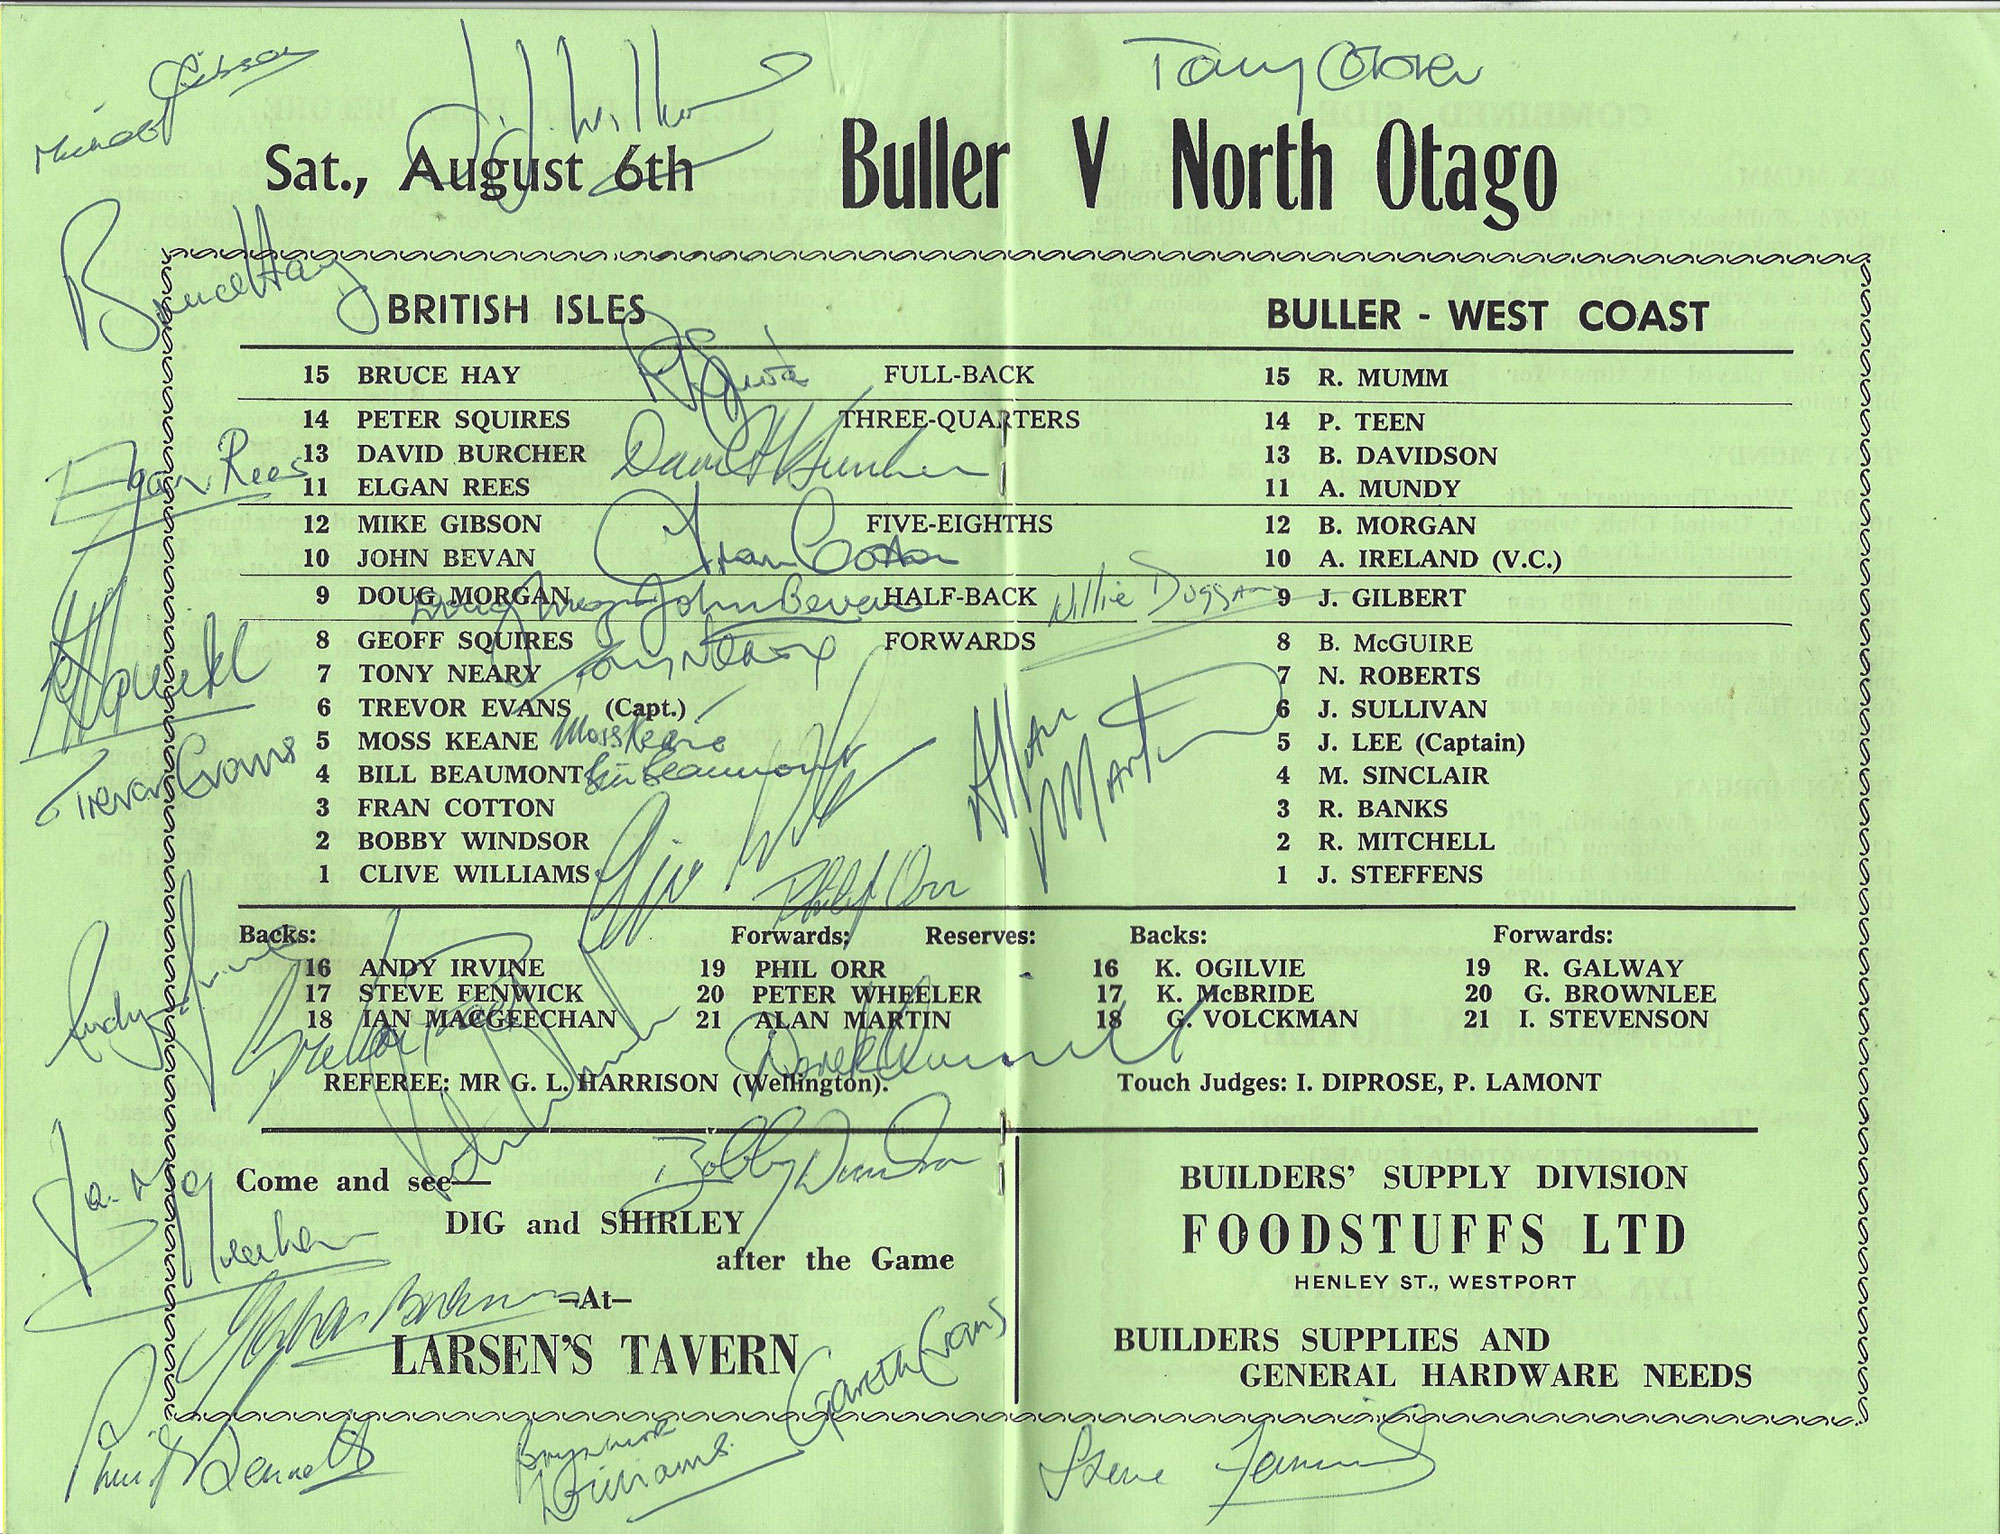 Tony
Sat., August 6th
Buller V North Otago
Bruce Hay
BRITISH ISLES
BULLER - WEST COAST
15 BRUCE HAY FULL-BACK 15 R. MUMM
14 PETER SQUIRES THREE-QUARTERS 14 P. TEEN
13 DAVID BURCHER 13 B. DAVIDSON
Elgan Rees
11 ELGAN REES 11 A. MUNDY
12 MIKE GIBSON FIVE-EIGHTHS 12 B. MORGAN
Fran Cotton
10 JOHN BEVAN 10 A. IRELAND (V.C.)
9 DOUG MORGAN HALF-BACK 9 J. GILBERT
Doug Morgan John Bevan Willie Duggan
8 GEOFF SQUIRES FORWARDS 8 B. McGUIRE
Tony Neary
7 TONY NEARY 7 N. ROBERTS
6 TREVOR EVANS (Capt.) 6 J. SULLIVAN
5 MOSS KEANE Moss Keane 5 J. LEE (Captain)
Trevor Evans
4 BILL BEAUMONT Bill Beaumont 4 M. SINCLAIR
Allan Martin
3 FRAN COTTON 3 R. BANKS
2 BOBBY WINDSOR 2 R. MITCHELL
1 CLIVE WILLIAMS 1 J. STEFFENS
Philip Orr
Backs: Forwards: Reserves: Backs: Forwards:
16 ANDY IRVINE 19 PHIL ORR 16 K. OGILVIE 19 R. GALWAY
17 STEVE FENWICK 20 PETER WHEELER 17 K. McBRIDE 20 G. BROWNLEE
18 IAN MACGEECHAN 21 ALAN MARTIN 18 G. VOLCKMAN 21 I. STEVENSON
Andy Irvine
Derek Quinnell
REFEREE: MR G. L. HARRISON (Wellington). Touch Judges: I. DIPROSE, P. LAMONT
Bobby Windsor
Come and see—
DIG and SHIRLEY
after the Game
—At—
LARSEN'S TAVERN
BUILDERS' SUPPLY DIVISION
FOODSTUFFS LTD
HENLEY ST., WESTPORT
BUILDERS SUPPLIES AND
GENERAL HARDWARE NEEDS
Gareth Evans
Phil Bennett
Williams
Steve Fenwick